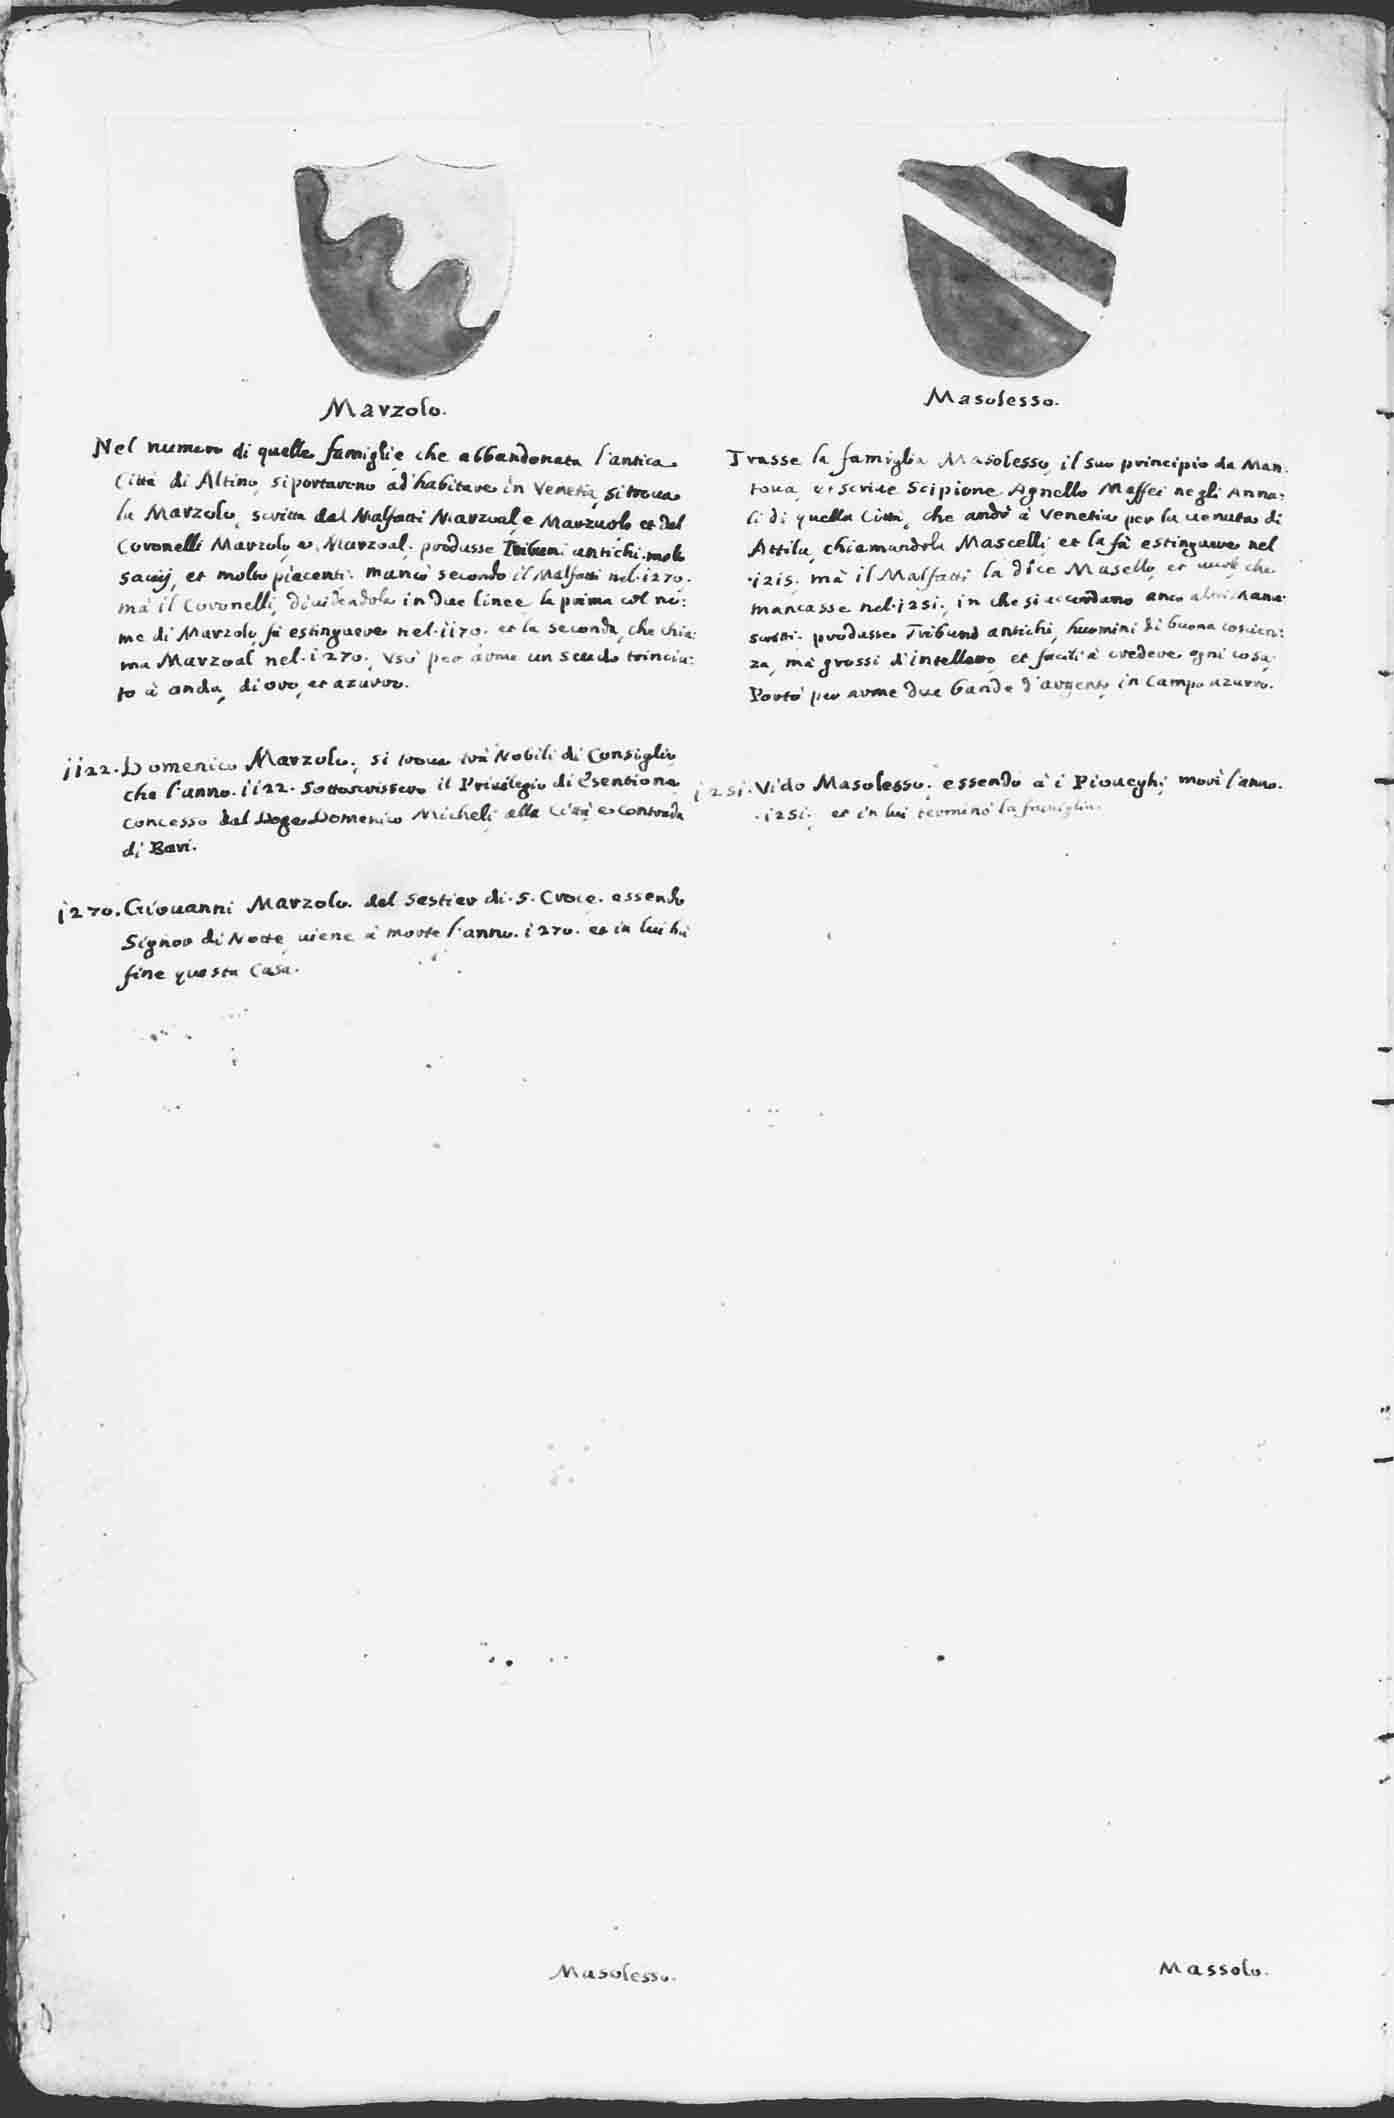 Marzolo.
Nel numero di quelle famiglie che abbandonata l'antica
Città di Altino, si portarono ad'habitare in Venetia, si troua
la Marzolo, scritta dal Malfatti Marzoal, e Marzuolo et dal
Coronelli Marzolo, e, Marzoal. produsse Tribuni antichi. molto
sauij, et molto piacenti. mancò secondo il Malfatti nel. 1270.
mà il Coronelli, diuidendola in due linee, la prima col no:
me di Marzolo, fà estinguere nel. 1170. et la seconda, che chia:
ma Marzoal nel. 1270. Vsò per arme un scudo trincia:
to à onda, di oro, et azurro.
1122. Domenico Marzolo. si troua trà Nobili di Consiglio
che l'anno. 1122. Sottoscrissero il Priuilegio di Esentione
concesso dal Doge Domenico Micheli alla Città, e Contrada
di Bari.
1270. Giouanni Marzolo. del Sestier di. S. Croce. essendo
Signor di Notte, uiene à morte l'anno. 1270. et in lui hà
fine questa Casa.
Masolesso.
Trasse la famiglia Masolesso, il suo principio da Man:
toua, et scriue Scipione Agnello Maffei negli Anna:
li di quella Città, che andò à Venetia per la uenuta di
Attila, chiamandola Mascelli, et la fà estinguere nel
.1215. mà il Malfatti la dice Masello, et uuole, che
mancasse nel. 1251. in che si accordano anco altri Manu:
scritti. produsse Tribuni antichi, huomini di buona coscien:
za, mà grossi d'intelletto, et facili à credere ogni cosa.
Portò per arme due bande d'argento in Campo azurro.
1251. Vido Masolesso. essendo à i Pioueghi, morì l'anno.
.1251. et in lui terminò la famiglia.
Masolesso.
Massolo.